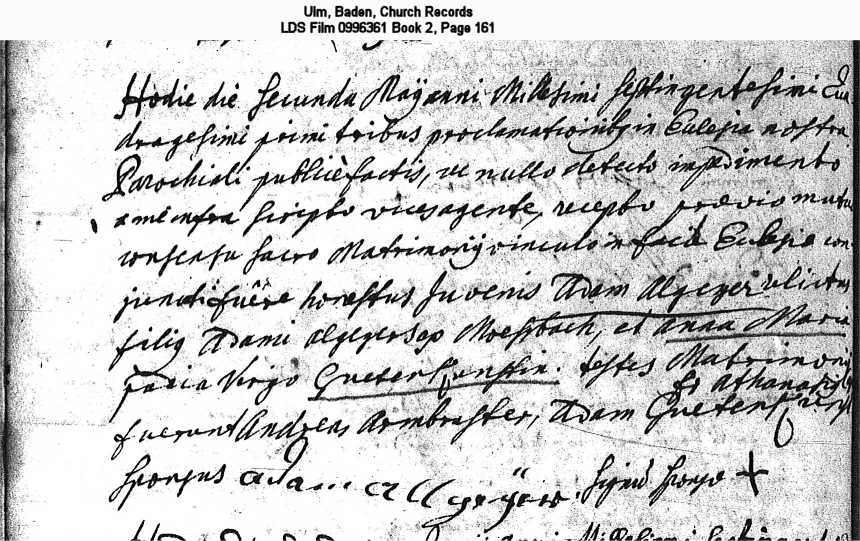 Ulm, Baden, Church Records
LDS Film 0996361 Book 2, Page 161
Hodie die Secunda Maÿ anni Millesimi Septingentesimi Qua
dragesimi primi tribus proclamationibus in Eclesia nostra
Parochiali publice factis, ac nullo detecto impedimento
a me infra scripto vices agente, recepto prævio mutuo
consensu sacro Matrimonÿ vinculo in facie Eclesiæ con
juncti fuêre honestus Juvenis Adam Algeyer relictus
filius Adami algeyers Moessbach, et anna Maria
Virgo testes Matrimonÿ
fuerunt Andreas Armbruster, Adam
fr Athanasius
Sponsus adam allgeÿer. Signũ Sponsæ +